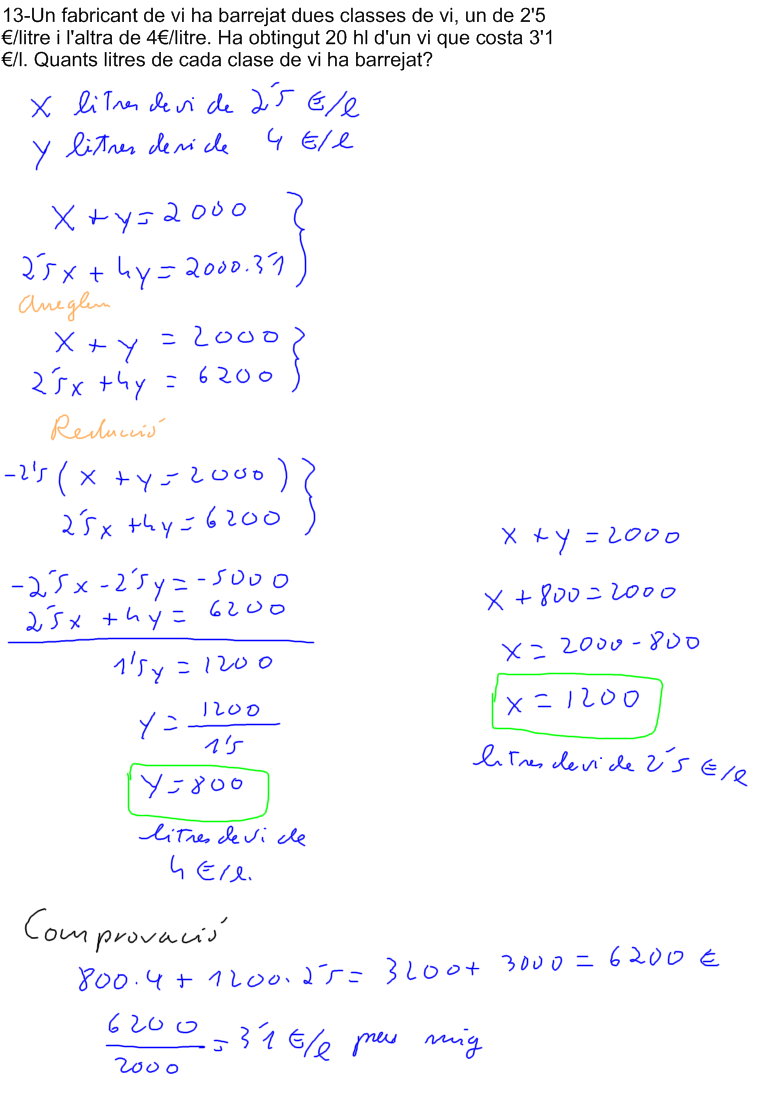 13-Un fabricant de vi ha barrejat dues classes de vi, un de 2'5
€/litre i l'altra de 4€/litre. Ha obtingut 20 hl d'un vi que costa 3'1
€/l. Quants litres de cada clase de vi ha barrejat?
x litres de vi de 2'5 €/l
y litres de vi de 4 €/l
x + y = 2000
2'5x + 4y = 2000.3'1
Arreglem
x + y = 2000
2'5x + 4y = 6200
Reducció
-2'5 ( x + y = 2000 )
2'5x + 4y = 6200
-2'5x - 2'5y = -5000
2'5x + 4y = 6200
1'5y = 1200
y = 1200
1'5
y = 800
litres de vi de
4 €/l.
x + y = 2000
x + 800 = 2000
x = 2000 - 800
x = 1200
litres de vi de 2'5 €/l
Comprovació
800.4 + 1200.2'5 = 3200 + 3000 = 6200 €
6200
2000
= 3'1 €/l preu mig